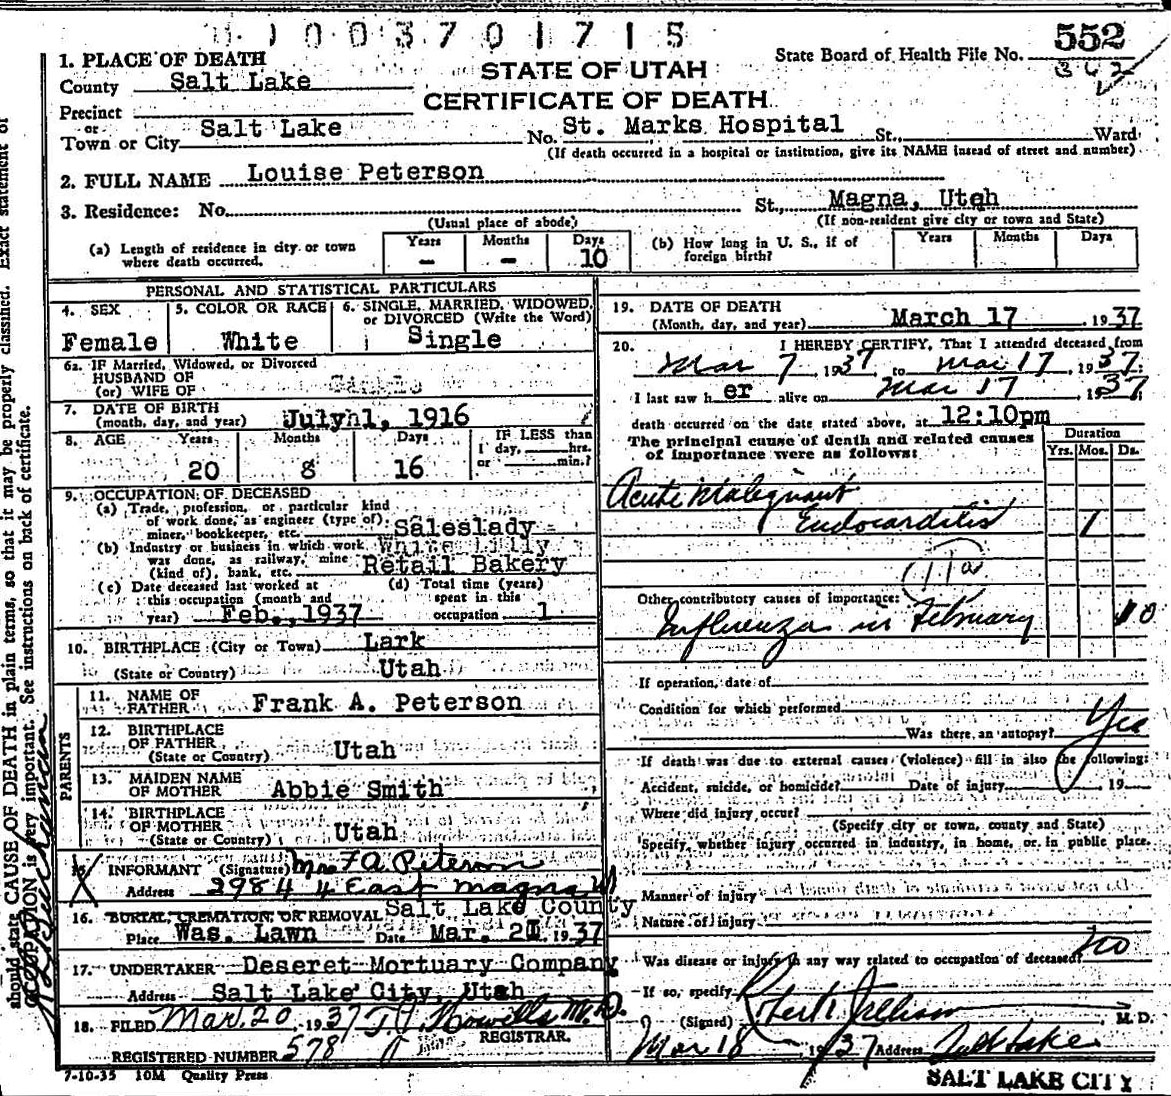 1003701715
552
State Board of Health File No.
362
1. PLACE OF DEATH
STATE OF UTAH
County Salt Lake
CERTIFICATE OF DEATH
Precinct
or
Town or City Salt Lake No. St. Marks Hospital St., Ward
(If death occurred in a hospital or institution, give its NAME insead of street and number)
2. FULL NAME Louise Peterson
3. Residence: No. St., Magna, Utah
(Usual place of abode) (If non-resident give city or town and State)
(a) Length of residence in city or town where death occurred. Years - Months - Days 10
(b) How long in U. S., if of foreign birth? Years Months Days
PERSONAL AND STATISTICAL PARTICULARS
4. SEX Female
5. COLOR OR RACE White
6. SINGLE, MARRIED, WIDOWED, or DIVORCED (Write the Word) Single
6a. IF Married, Widowed, or Divorced
HUSBAND OF
(or) WIFE OF Single
7. DATE OF BIRTH
(month, day, and year) July 1, 1916
8. AGE Years 20 Months 8 Days 16
IF LESS than 1 day, hrs. or min.?
9. OCCUPATION OF DECEASED
(a) Trade, profession, or particular kind
of work done, as engineer (type of)
miner, bookkeeper, etc. Saleslady
(b) Industry or business in which work White Lilly
was done, as railway, mine
(kind of), bank, etc. Retail Bakery
(c) Date deceased last worked at
this occupation (month and
year) Feb., 1937
(d) Total time (years)
spent in this
occupation 1
10. BIRTHPLACE (City or Town) Lark
(State or Country) Utah
PARENTS
11. NAME OF
FATHER Frank A. Peterson
12. BIRTHPLACE
OF FATHER
(State or Country) Utah
13. MAIDEN NAME
OF MOTHER Abbie Smith
14. BIRTHPLACE
OF MOTHER
(State or Country) Utah
15. INFORMANT (Signature) Mrs F A Peterson
Address 2984 4 East Magna Ut
16. BURIAL, CREMATION, OR REMOVAL Salt Lake County
Place Was. Lawn Date Mar. 21, 1937
17. UNDERTAKER Deseret Mortuary Company
Address Salt Lake City, Utah
18. FILED Mar. 20, 1937 Howells M.D.
REGISTRAR.
REGISTERED NUMBER 578
7-10-35 10M Quality Press
19. DATE OF DEATH
(Month, day, and year) March 17, 1937
20. I HEREBY CERTIFY, That I attended deceased from
Mar 7, 1937 to Mar 17, 1937
I last saw h er alive on Mar 17, 1937
death occurred on the date stated above, at 12:10pm
The principal cause of death and related causes
of importance were as follows:
Duration
Yrs. Mos. Ds.
Acute Malegnant
Endocarditis 1
Other contributory causes of importance:
Influenza in February 10
If operation, date of
Condition for which performed
Was there an autopsy? Yes
If death was due to external causes (violence) fill in also the following:
Accident, suicide, or homicide? Date of injury , 19
Where did injury occur?
(Specify city or town, county and State)
Specify whether injury occurred in industry, in home, or in public place.
Manner of injury
Nature of injury
Was disease or injury in any way related to occupation of deceased? No
If so, specify
(Signed) M. D.
Mar 18 1937 Address Salt Lake
SALT LAKE CITY
should state CAUSE OF DEATH in plain terms, so that it may be properly classified. Exact statement of
OCCUPATION is very important. See instructions on back of certificate.